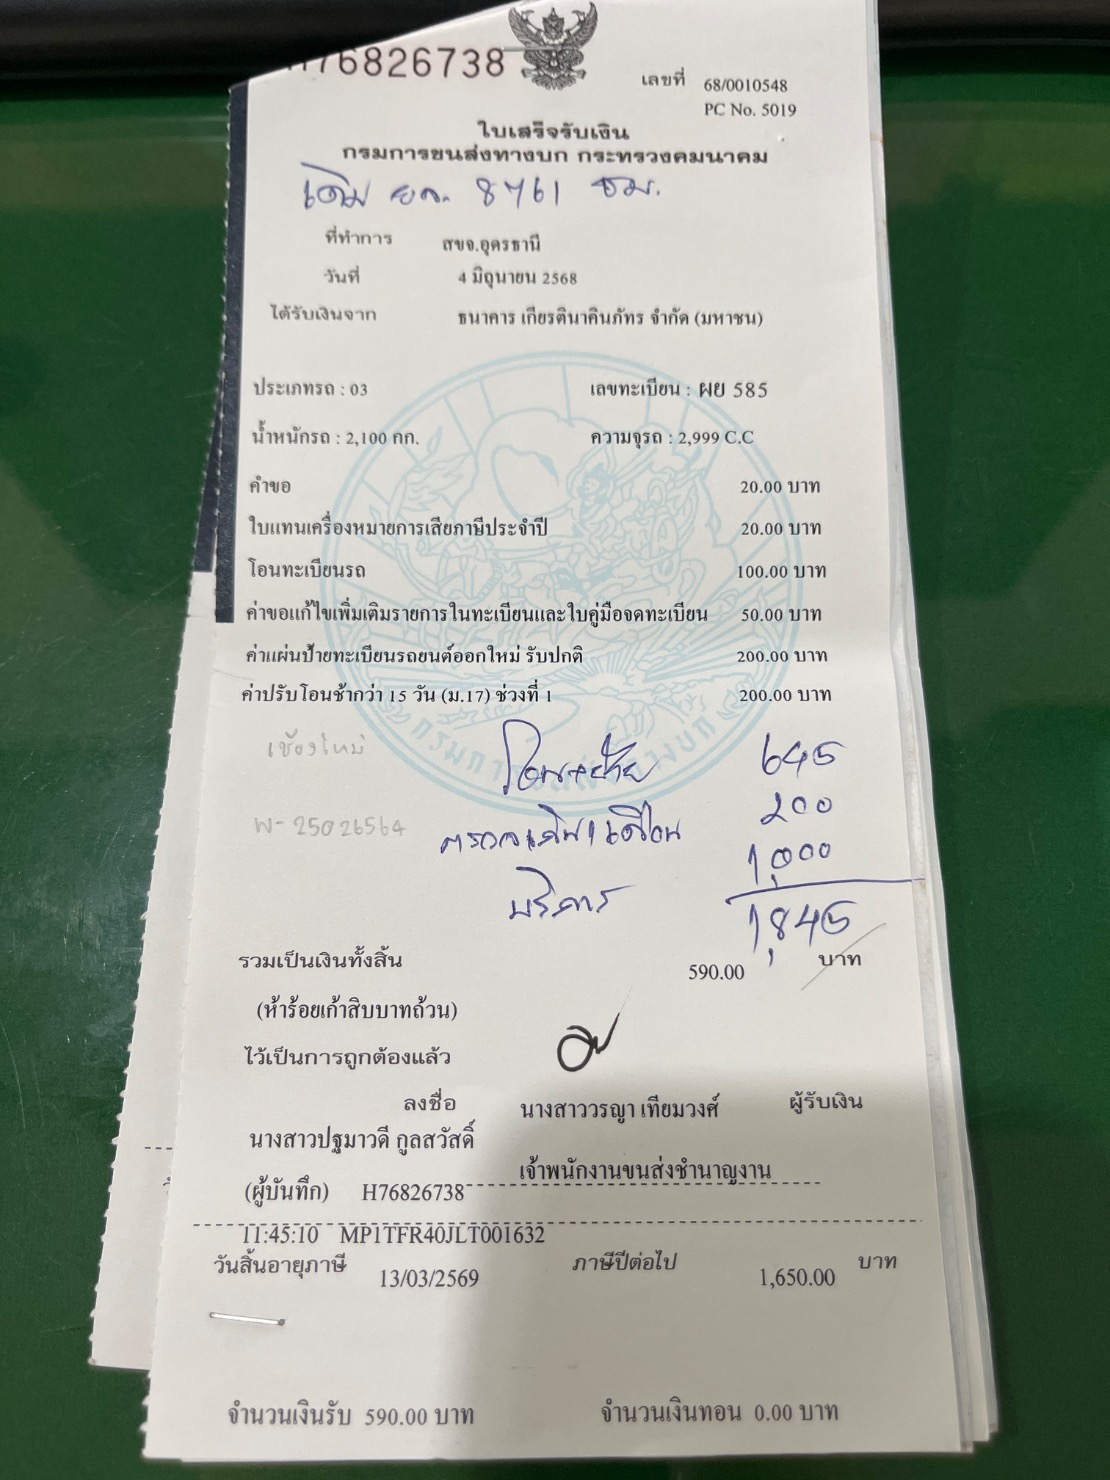 H76826738
เลขที่ 68/0010548
PC No. 5019
ใบเสร็จรับเงิน
กรมการขนส่งทางบก กระทรวงคมนาคม
เดิม ยจ. 8761 ชม.
ที่ทำการ สขจ.อุดรธานี
วันที่ 4 มิถุนายน 2568
ได้รับเงินจาก ธนาคาร เกียรตินาคินภัทร จำกัด (มหาชน)
ประเภทรถ : 03 เลขทะเบียน : ผย 585
น้ำหนักรถ : 2,100 กก. ความจุรถ : 2,999 C.C
คำขอ 20.00 บาท
ใบแทนเครื่องหมายการเสียภาษีประจำปี 20.00 บาท
โอนทะเบียนรถ 100.00 บาท
ค่าขอแก้ไขเพิ่มเติมรายการในทะเบียนและใบคู่มือจดทะเบียน 50.00 บาท
ค่าแผ่นป้ายทะเบียนรถยนต์ออกใหม่ รับปกติ 200.00 บาท
ค่าปรับโอนช้ากว่า 15 วัน (ม.17) ช่วงที่ 1 200.00 บาท
เชียงใหม่ โอน+ย้าย 645
W-25026564 200
บริการ 1,000
1,845
รวมเป็นเงินทั้งสิ้น 590.00 บาท
(ห้าร้อยเก้าสิบบาทถ้วน)
ไว้เป็นการถูกต้องแล้ว
ลงชื่อ นางสาววรญา เทียมวงศ์ ผู้รับเงิน
นางสาวปฐมาวดี กูลสวัสดิ์
เจ้าพนักงานขนส่งชำนาญงาน
(ผู้บันทึก) H76826738
11:45:10 MP1TFR40JLT001632
วันสิ้นอายุภาษี 13/03/2569 ภาษีปีต่อไป 1,650.00 บาท
จำนวนเงินรับ 590.00 บาท จำนวนเงินทอน 0.00 บาท